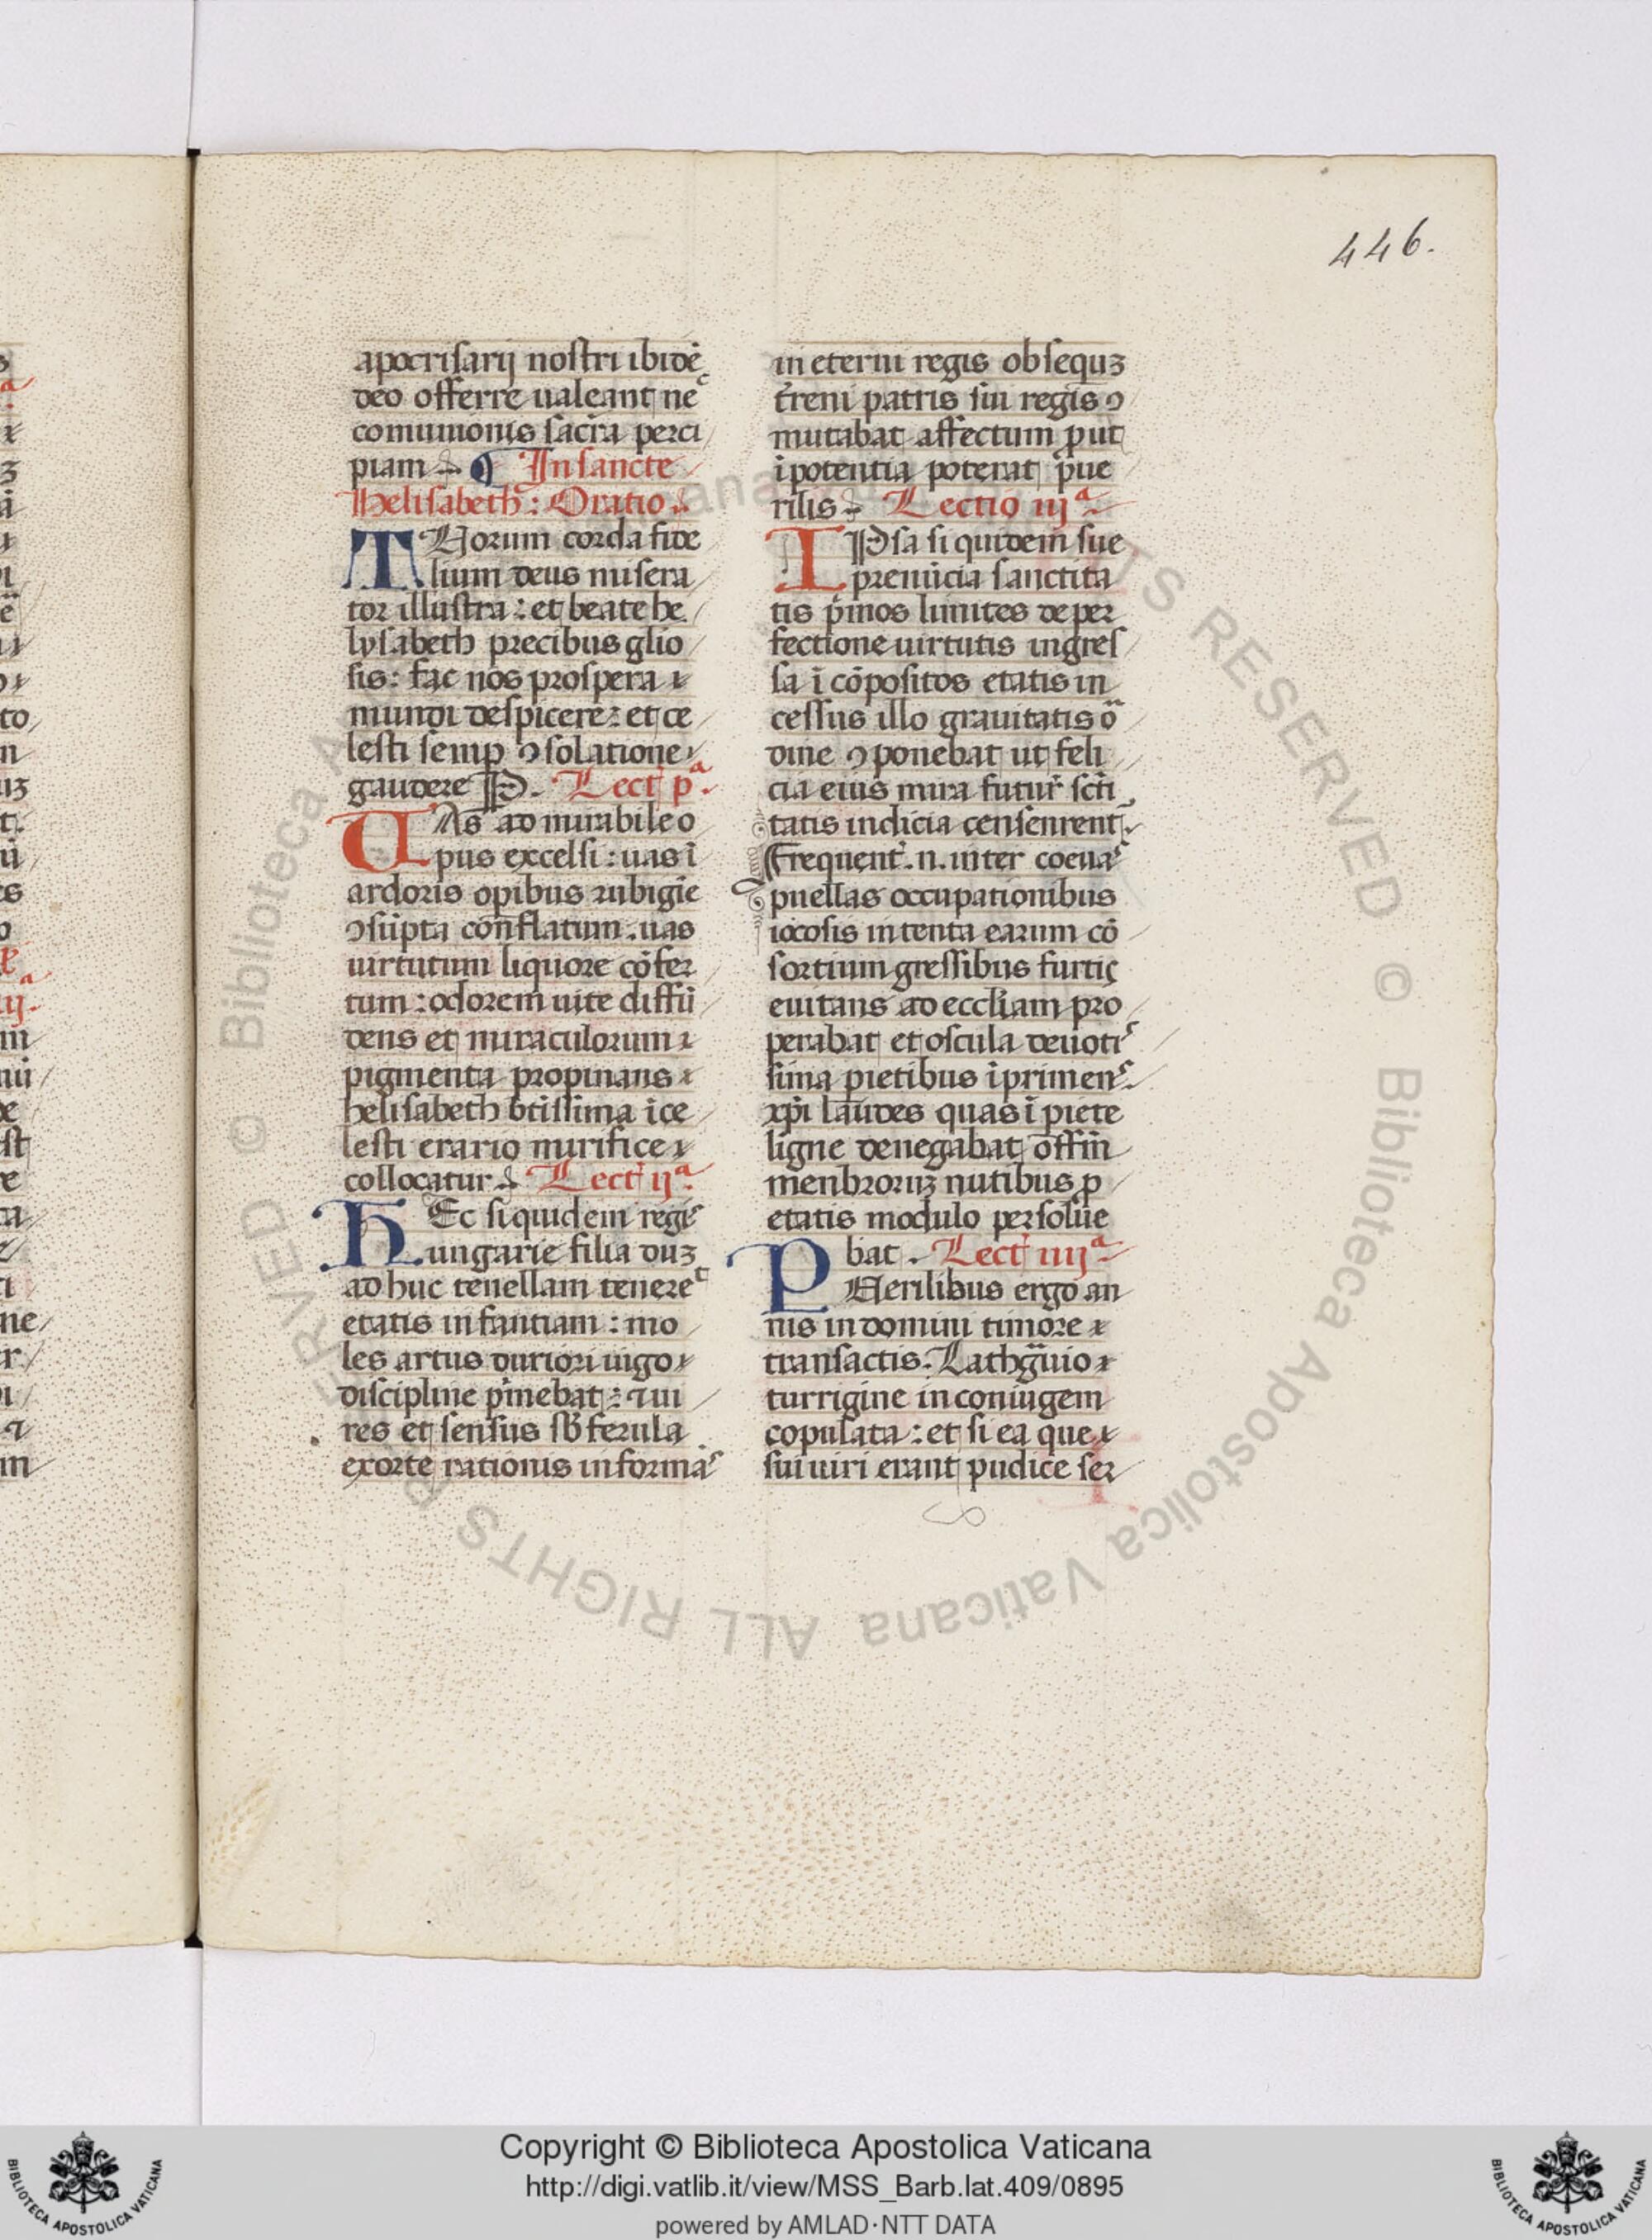 446.
apocrisarij nostri ibidē
deo offerre ualeant nec
comunionis sacra perci
piam ¶ In sancte
Helisabeth: Oratio.
THorum corda fide
lium deus misera
tor illustra: et beate he
lysabeth precibus glio
sis: fac nos prospera
mundi despicere: et ce
lesti semp ꝯsolatione
gaudere P. Lect pª.
UAs ad mirabile o
pus excelsi: uas ī
ardoris opibus rubigīe
ꝯsūpta conflatum. uas
uirtutum liquore cōfer
tum: odorem uite diffū
dens et miraculorum
pigmenta propinans
helisabeth btissima ī ce
lesti erario mirifice
collocatur. Lect ijª.
HEc siquidem regis
ungarie filia duꝫ
ad huc tenellam tenert
etatis infantiam: mo
les artus duriori uigo
discipline p̄mebat: ⁊ ui
res et sensus sb̄ ferula
exorte rationis informas
in eterni regis obsequꝫ
t̄reni patris sui regis ꝯ
mutabat affectum put
īpotentia poterat pue
rilis. Lectio iijª.
IPsa si quidem sue
prenūcia sanctita
tis p̄mos limites de per
fectione uirtutis ingres
sa ī cōpositos etatis in
cessus illo grauitatis o
dine ꝯponebat ut feli
cia eius mira futur̄ scti
tatis indicia censenrent.
Frequent̄ .n. inter coeuas
puellas occupationibus
iocosis intenta earum cō
sortium gressibus furtiç
euitans ad eccliam pro
perabat et oscula deuotis
sima pietibus īprimens.
xpi laudes quas ī piete
ligne denegabat offin
menbroruꝫ nutibus ꝓ
etatis modulo persolūe
bat. Lect iiijª.
PUerilibus ergo an
nis in domini timore
transactis. Lathgᵃuio
turrigine in coniugem
copulata: et si ea que
sui uiri erant pudice ser
Copyright © Biblioteca Apostolica Vaticana
http://digi.vatlib.it/view/MSS_Barb.lat.409/0895
powered by AMLAD·NTT DATA
BIBLIOTECA APOSTOLICA VATICANA
BIBLIOTECA APOSTOLICA VATICANA